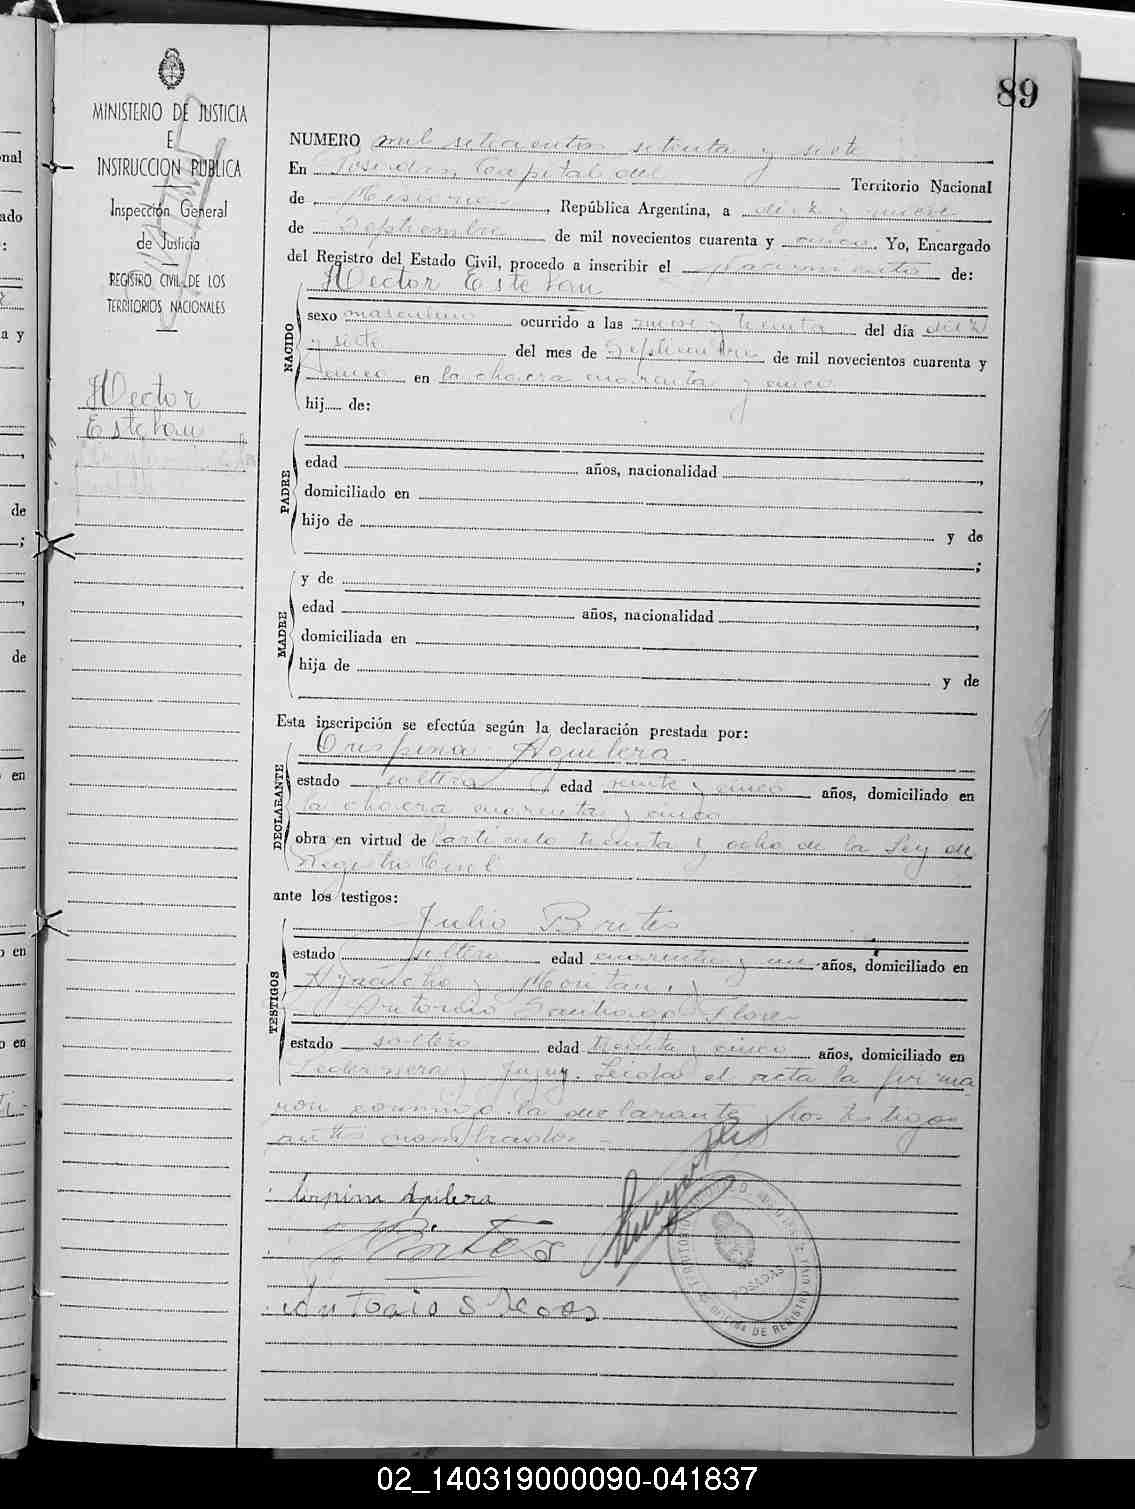 89
MINISTERIO DE JUSTICIA
E
INSTRUCCION PUBLICA
Inspección General
de Justicia
REGISTRO CIVIL DE LOS
TERRITORIOS NACIONALES
Hector
Esteban
NUMERO mil setecientos setenta y siete
En Posadas, Capital del Territorio Nacional
de Misiones, República Argentina, a diez y nueve
de Septiembre de mil novecientos cuarenta y cinco. Yo, Encargado
del Registro del Estado Civil, procedo a inscribir el Nacimiento de:
NACIDO
Hector Esteban
sexo masculino ocurrido a las nueve y treinta del día diez
y siete del mes de Septiembre de mil novecientos cuarenta y
cinco en la chacra cuarenta y cinco
hij..... de:
PADRE
edad años, nacionalidad ,
domiciliado en
hijo de y de
;
MADRE
y de
edad años, nacionalidad ,
domiciliada en
hija de y de
Esta inscripción se efectúa según la declaración prestada por:
DECLARANTE
Crispina Aguilera
estado soltera edad veinte y cinco años, domiciliado en
la chacra cuarenta y cinco
obra en virtud del artículo treinta y ocho de la Ley de
Registro Civil
ante los testigos:
TESTIGOS
Julio Brites
estado soltero edad cuarenta y un años, domiciliado en
Ayacucho y
Antonio Santiago Flores
estado soltero edad treinta y cinco años, domiciliado en
y Jujuy. Leida el acta la firma
ron conmigo la declarante y los testigos
antes nombrados.
Crispina Aguilera
Brites
Antonio S
POSADAS
OFICINA DE REGISTRO
02_140319000090-041837